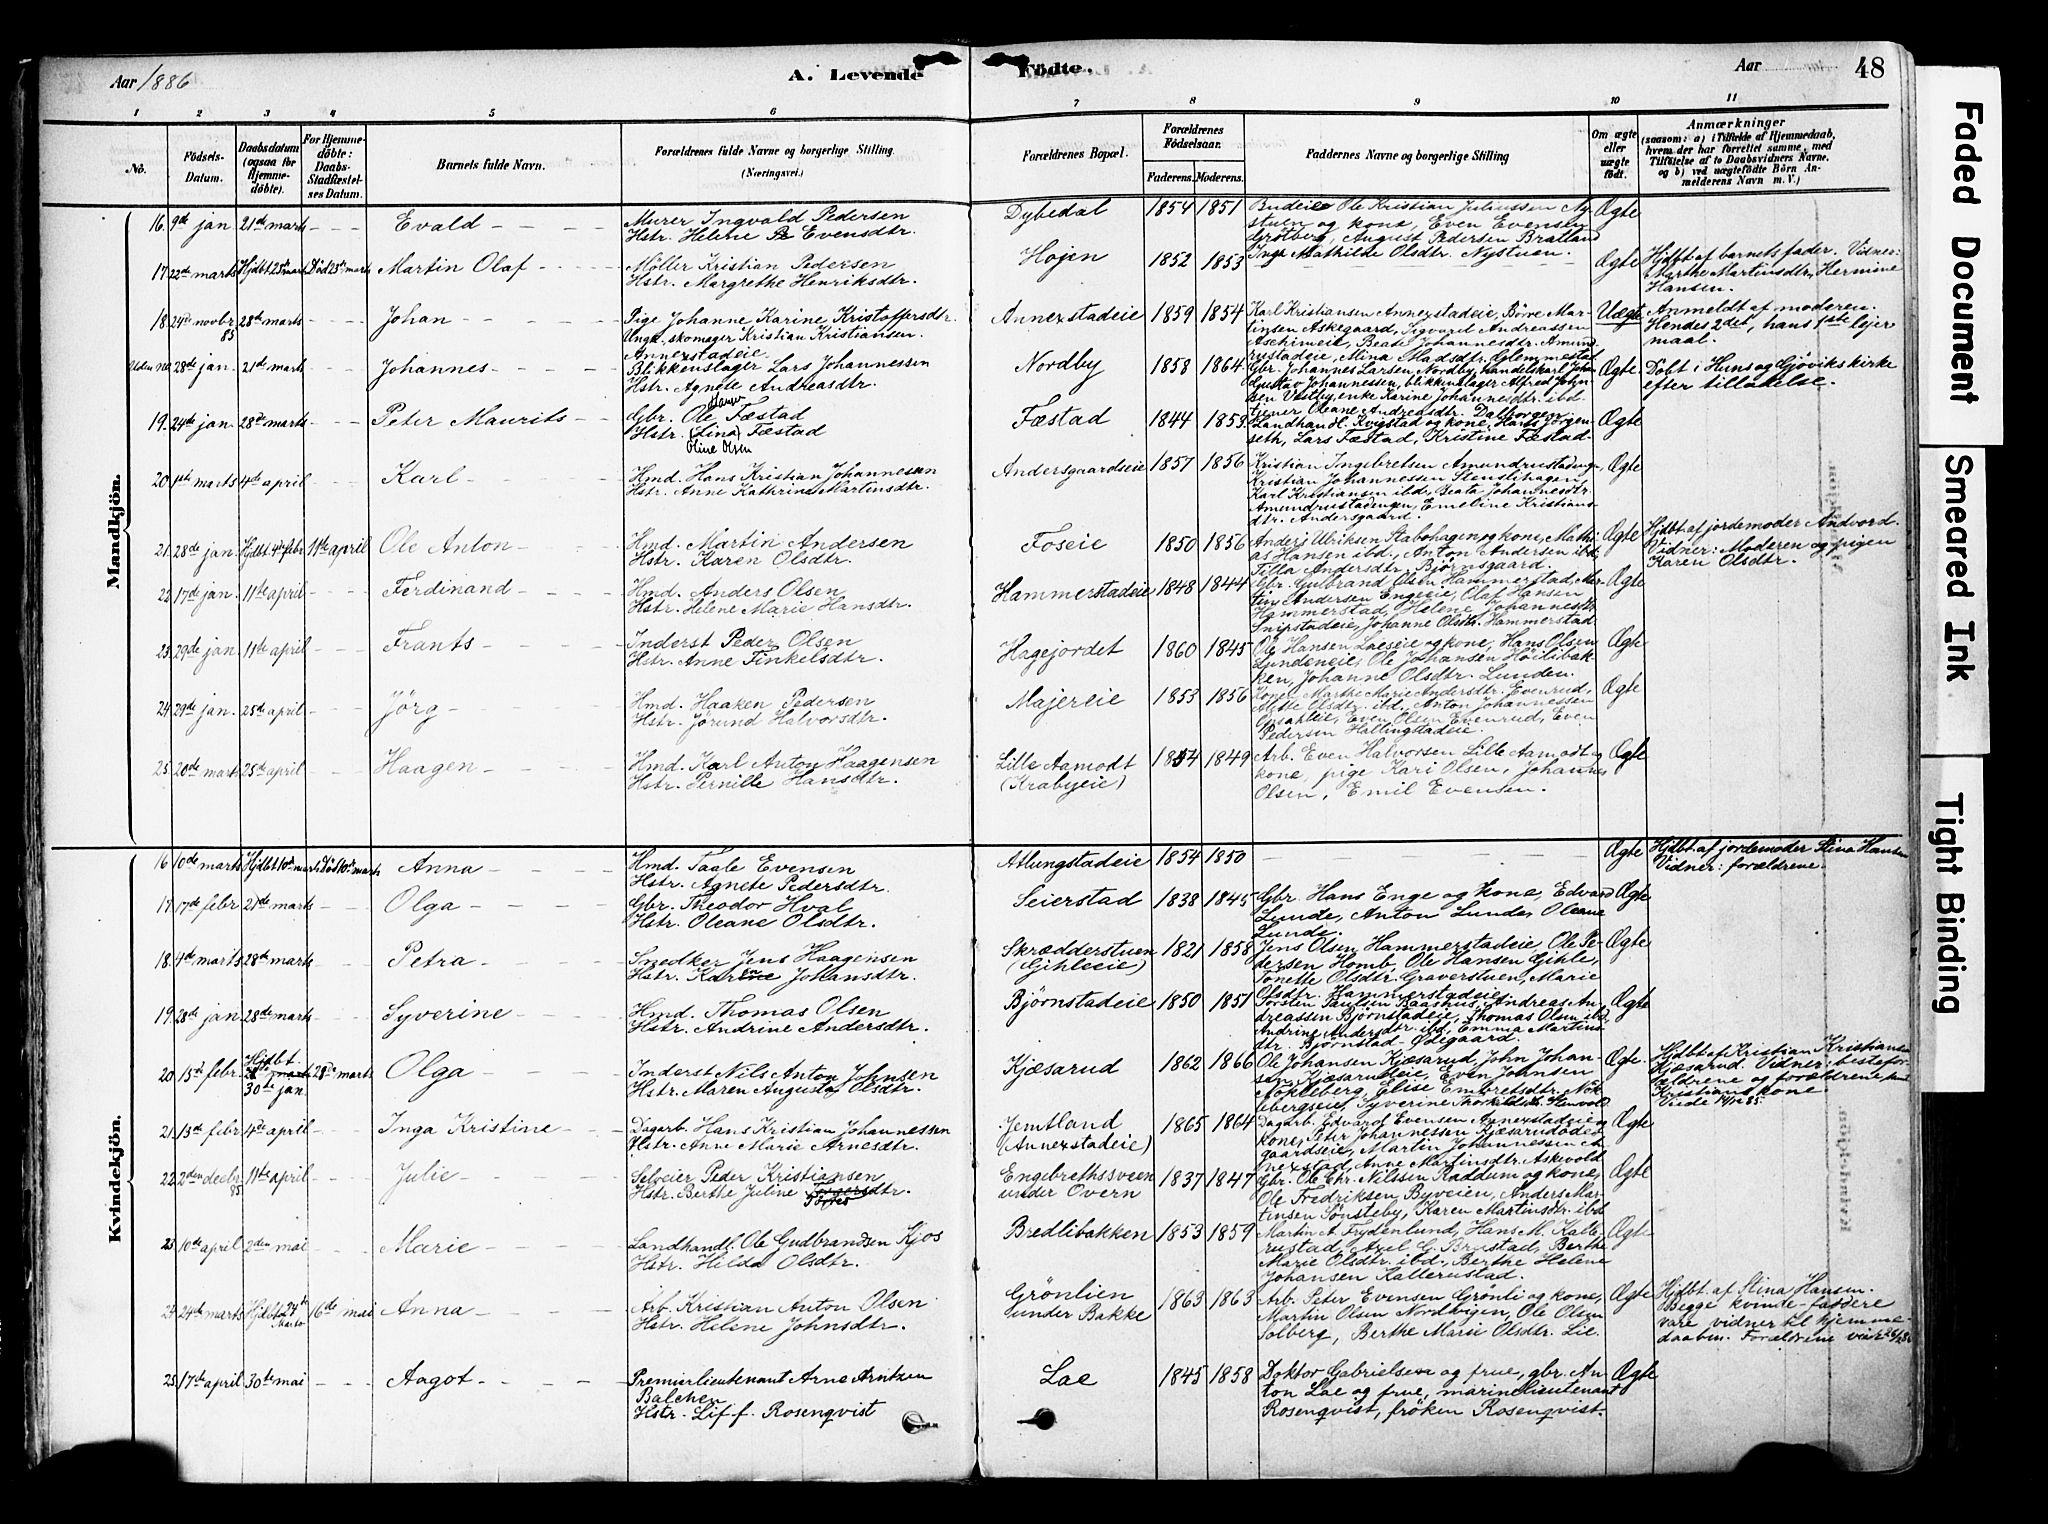 Aar 1886
A. Levende
Födte.
Aar
48
1 2 3 4 5 6 7 8 9 10 11
No.
Födsels-Datum.
Daabsdatum (ogsaa for Hjemme-döbte).
For Hjemme-döbte: Daabs-Stadfæstelses Datum.
Barnets fulde Navn.
Forældrenes fulde Navne og borgerlige Stilling (Næringsvei.)
Forældrenes Bopæl.
Forældrenes Födselsaar.
Faderens. Moderens.
Faddernes Navne og borgerlige Stilling
Om ægte eller uægte födt.
Anmærkninger
(saasom: a) i Tilfælde af Hjemmedaab, hvem der har forrettet samme, med Tilföielse af to Daabsvidners Navne, og b) ved uægtefödte Börn Anmelderens Navn m. V.)
Mandkjön.
16. 9de jan 21de marts Evald
Murer Ingvald Pedersen
Hstr. Helene Evensdtr.
Dybedal 1854 1851
Budeie Ole Kristian Juliussen Nystuen og kone, Even Evensen
Grötberg, August Pedersen Bratland
Inga Mathilde Olsdtr. Nystuen.
Ægte
17. 22de marts Hjdbt 25de marts Död 25de marts Martin Olaf
Möller Kristian Pedersen
Hstr. Margrethe Henriksdtr.
Höjen 1852 1853 Ægte
Hjdbt af barnets fader. Vidner:
Marthe Martinsdtr, Hermine
Hansen.
18. 24de novbr 85 28de marts Johan
Pige Johanne Karine Kristoffersdtr.
Ungk. skomager Kristian Kristiansen.
Annexstadeie
Annexstadeie 1859 1854
Karl Kristiansen Annexstadeie, Börre Martinsen Askegaard, Sigvard Andreassen
Aschimeie, Beate Johannesdtr. Amundrustadeie, Mina Madsdtr. Glemmestad
Uægte
Anmeldt af moderen.
Hendes 2det, hans 1ste lejermaal.
Uden No. 28de jan. 21de marts Johannes
Blikkenslager Lars Johannessen
Hstr. Agnete Andreasdtr.
Nordby 1858 1864
Gbr. Johannes Larsen, Nordby, handelskarl Johan
Gustav Johannessen, blikkenslager Alfred Johnsen Vestby, enke Karine Johannesdtr. ibd
tjener Oleane Andreasdtr. Dalborgen
Ægte
Döbt i Huns og Gjöviks kirke
efter tilladelse.
19. 24de jan 28de marts Peter Maurits
Gbr. Ole Hansen Fæstad
Hstr. (Lina) Fæstad
Oline Olsen
Fæstad 1844 1859
Landhandl. Kvigstad og kone, Hans Jörgenseth, Lars Fæstad, Kristine Fæstad
Ægte
20. 1ste marts 4de april Karl
Hmd. Hans Kristian Johannesen
Hstr. Anne Kathrine Martinsdtr.
Andersgaardseie 1857 1856
Kristian Ingebretsen Amundrustadengen,
Kristian Johannessen Stenslihagen,
Karl Kristiansen ibd, Beata Johannesdtr.
Amundrustadengen, Emeline Kristiansdtr. Andersgaard.
Ægte
21. 28de jan. Hjdbt. 4de febr 11te april Ole Anton
Hmd. Martin Andersen
Hstr. Karen Olsdtr.
Foseie 1850 1856
Anders Ulriksen Stabohagen og kone, Mathias Hansen ibd., Anton Andersen ibd,
Tilla Andersdtr. Björnsgaard.
Ægte
Hjdbt. af jordemoder Andvord.
Vidner: Moderen og pigen
Karen Olsdtr.
22. 17de jan. 11te april Ferdinand
Hmd. Anders Olsen
Hstr. Helene Marie Hansdtr.
Hammerstadeie 1848 1844
Gbr. Gulbrand Olsen Hammerstad, Martin Andersen Engeeie, Olaf Hansen
Hammerstad, Helene Johannesdtr.
Snipstadeie, Johanne Olsdtr. Hammerstad
Ægte
23. 29de jan. 11te april Frants
Inderst Peder Olsen
Hstr. Anne Finkelsdtr.
Hagejordet 1860 1845
Ole Hansen Laeseie og kone, Hans Olsen
Lundeneie, Ole Johansen Höilibakken, Johanne Olsdtr. Lunden.
Ægte
24. 29de jan. 25de april Jörg
Hmd. Haaken Pedersen
Hstr. Jörund Halvorsdtr.
Majereie 1853 1856
Kone Marthe Marie Andersdtr. Evenrud,
Mette Olsdtr. ibd., Anton Johannessen
Opsapleie, Even Olsen Evenrud, Even
Pedersen Hallingstadeie.
Ægte
25. 20de marts 25de april Haagen
Hmd. Karl Anton Haagensen
Hstr. Pernille Hansdtr.
Lille Aamodt
(Krabyeie) 1854 1849
Arb. Even Halvorsen Lille Aamodt og
kone, pige Kari Olsen, Johannes
Olsen, Emil Evensen.
Ægte
Kvindekjön.
16 10de marts Hjdbt 10de marts Död 10de marts Anna
Hmd. Taale Evensen
Hstr. Agnete Pedersdtr.
Atlungstadeie 1854 1850 Ægte
Hjdbt. af jordemoder Stina Hansen
Vidner: forældrene.
17. 17de febr 21de marts Olga
Gbr. Theodor Hval
Hstr. Oleane Olsdtr.
Seierstad 1838 1845
Gbr. Hans Enge og kone, Edvard
Lunde, Anton Lunde, Oleane
Lunde.
Ægte
18. 4de marts 28de marts Petra
Snedker Jens Haagensen
Hstr. Karen Johansdtr.
Skrædderstuen
(Gihleeie) 1821 1858
Jens Olsen Hammerstadeie, Ole Pedersen Homb, Ole Hansen Gihle,
Tonette Olsdtr. Graverstuen, Marie
Olsdtr. Hammerstadeie
Ægte
19. 28de jan 28de marts Syverine
Hmd. Thomas Olsen
Hstr. Andrine Andersdtr.
Björnstadeie 1850 1851
Torsten Paulsen Baashus, Andreas Andreassen Björnstadeie, Thomas Olsen ibd
Andrine Andersdtr. ibd, Emma Martinsdtr. Björnstad-Ödegaard.
Ægte
20. 15de febr. Hjdbt. 30te jan. 28de marts Olga
Inderst Nils Anton Johnsen
Hstr. Maren Augusta Olsdtr.
Kjæsarud 1862 1866
Ole Johansen Kjæsarud, John Johansen Kjæsarudeie, Even Johnsen
Nökleberg, Elise Embretsdtr. Nöklebergseie, Syverine Thorkildsdtr. Stenvold
Ægte
Hjdbt af Kristian Kristiansen
Kjæsarud. Vidner: bestefor-
ældrene og forældrene samt
Kristians kone
Viede 14/12 85.
21. 13de febr 4de april Inga Kristine
Dagarb. Hans Kristian Johannessen
Hstr. Anne Marie Arnesdtr.
Jemtland
(Annexstadeie) 1865 1864
Dagarb. Edvard Evensen Annexstadeie og
kone, Peter Johannessen Kjæsarudödegaardseie, Martin Johannessen Annexstad, Anne Martinsdtr. Askevold
Ægte
22. 2den decbr 85 11te april Julie
Selveier Peder Kristiansen
Hstr. Berthe Juline Töges dtr.
Engebrethssveen
under Overn 1837 1847
Gbr. Ole Chr. Nilssen Raddum og kone,
Ole Fredriksen Byveien, Anders Martinsen Sönsteby, Karen Martinsdtr. ibd
Ægte
23 10de april 2den mai Marie
Landhandl. Ole Gudbrandsen Kjos
Hstr. Hilda Olsdtr.
Bredlibakken 1853 1859
Martin A. Frydenlund, Hans M. Kallerustad, Axel G. Brustad, Berthe
Marie Olsdtr. ibd., Berthe Helene
Johansen Kallerustad.
Ægte
24. 24de marts Hjdbt 24de Marts 16de mai Anna
Arb. Kristian Anton Olsen
Hstr. Helene Johnsdtr.
Grönlien
under Bakke 1863 1863
Arb. Peter Evensen Grönli og kone,
Martin Olsen Nordvigen, Ole Olsen
Solberg, Berthe Marie Olsdtr. Lie.
Ægte
Hjdbt. af Stina Hansen.
Begge kvinde-faddere
vare vidner til hjemme-
daaben. Forældrene viet
25. 17de april 30te mai Aagot
Premierlieutenant Arne Arntzen
Balchen
Hstr. Lif f. Rosenqvist
Lae 1845 1858
Doktor Gabrielsen og frue, gbr. Anton Lae og frue, marinelieutenant
Rosenqvist, fröken Rosenqvist.
Ægte
Faded Document
Smeared Ink
Tight Binding